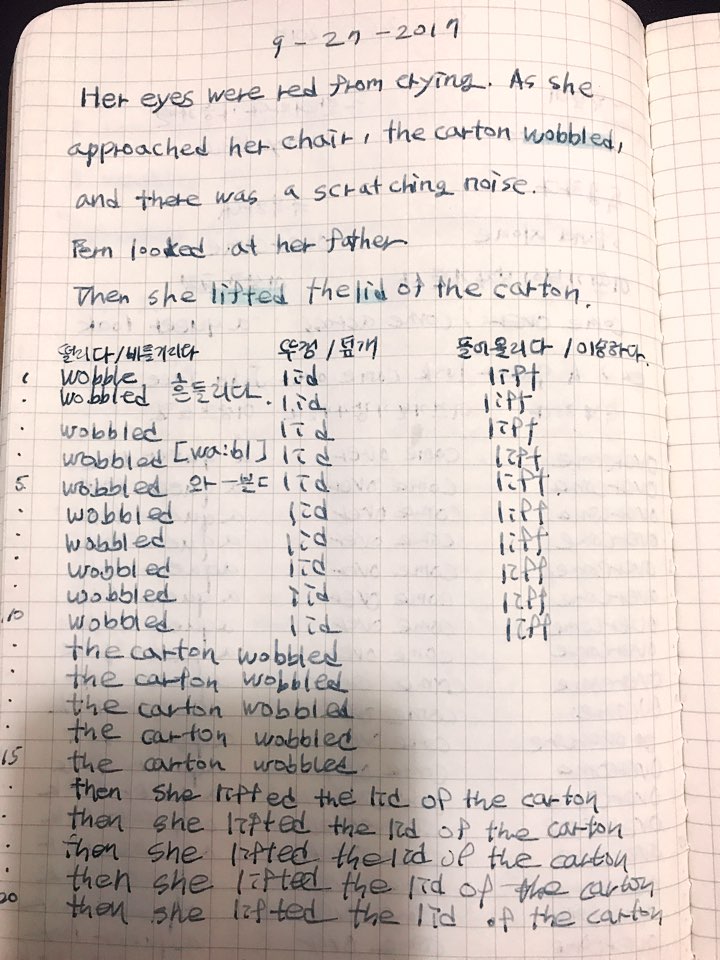 9-27-2017
Her eyes were red from crying. As she
approached her chair, the carton wobbled,
and there was a scratching noise.
Fern looked at her father
Then she lifted the lid of the carton.
떨리다/비틀거리다 뚜껑/덮개 들어올리다/이송하다.
wobble lid lift
wobbled 흔들리다. lid lift
wobbled lid lift
wobbled [wa:bl] lid lift
5 wobbled 와-블드 lid lift
wobbled lid lift
wobbled lid lift
wobbled lid lift
wobbled lid lift
10 wobbled lid lift
the carton wobbled
the carton wobbled
the carton wobbled
the carton wobbled
15 the carton wobbled
then she lifted the lid of the carton
then she lifted the lid of the carton
then she lifted the lid of the carton
then she lifted the lid of the carton
20 then she lifted the lid of the carton